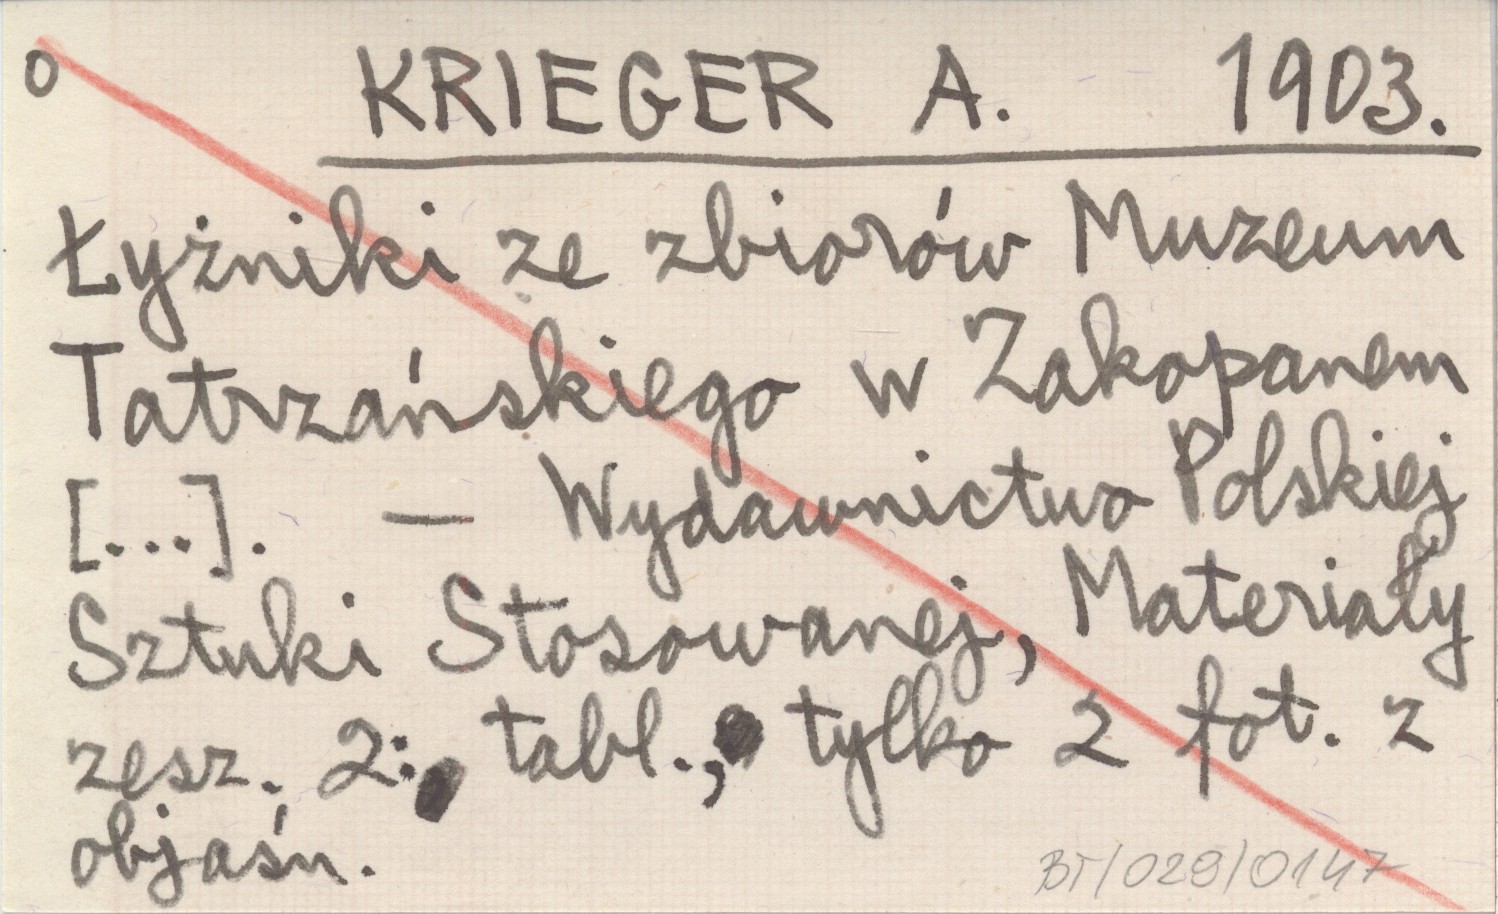 o KRIEGER A. 1903.
Łyżniki ze zbiorów Muzeum
Tatrzańskiego w Zakopanem
[...]. — Wydawnictwo Polskiej
Sztuki Stosowanej, Materiały
zesz. 2: tabl., tylko 2 fot. z
objaśn.
BT/029/0147